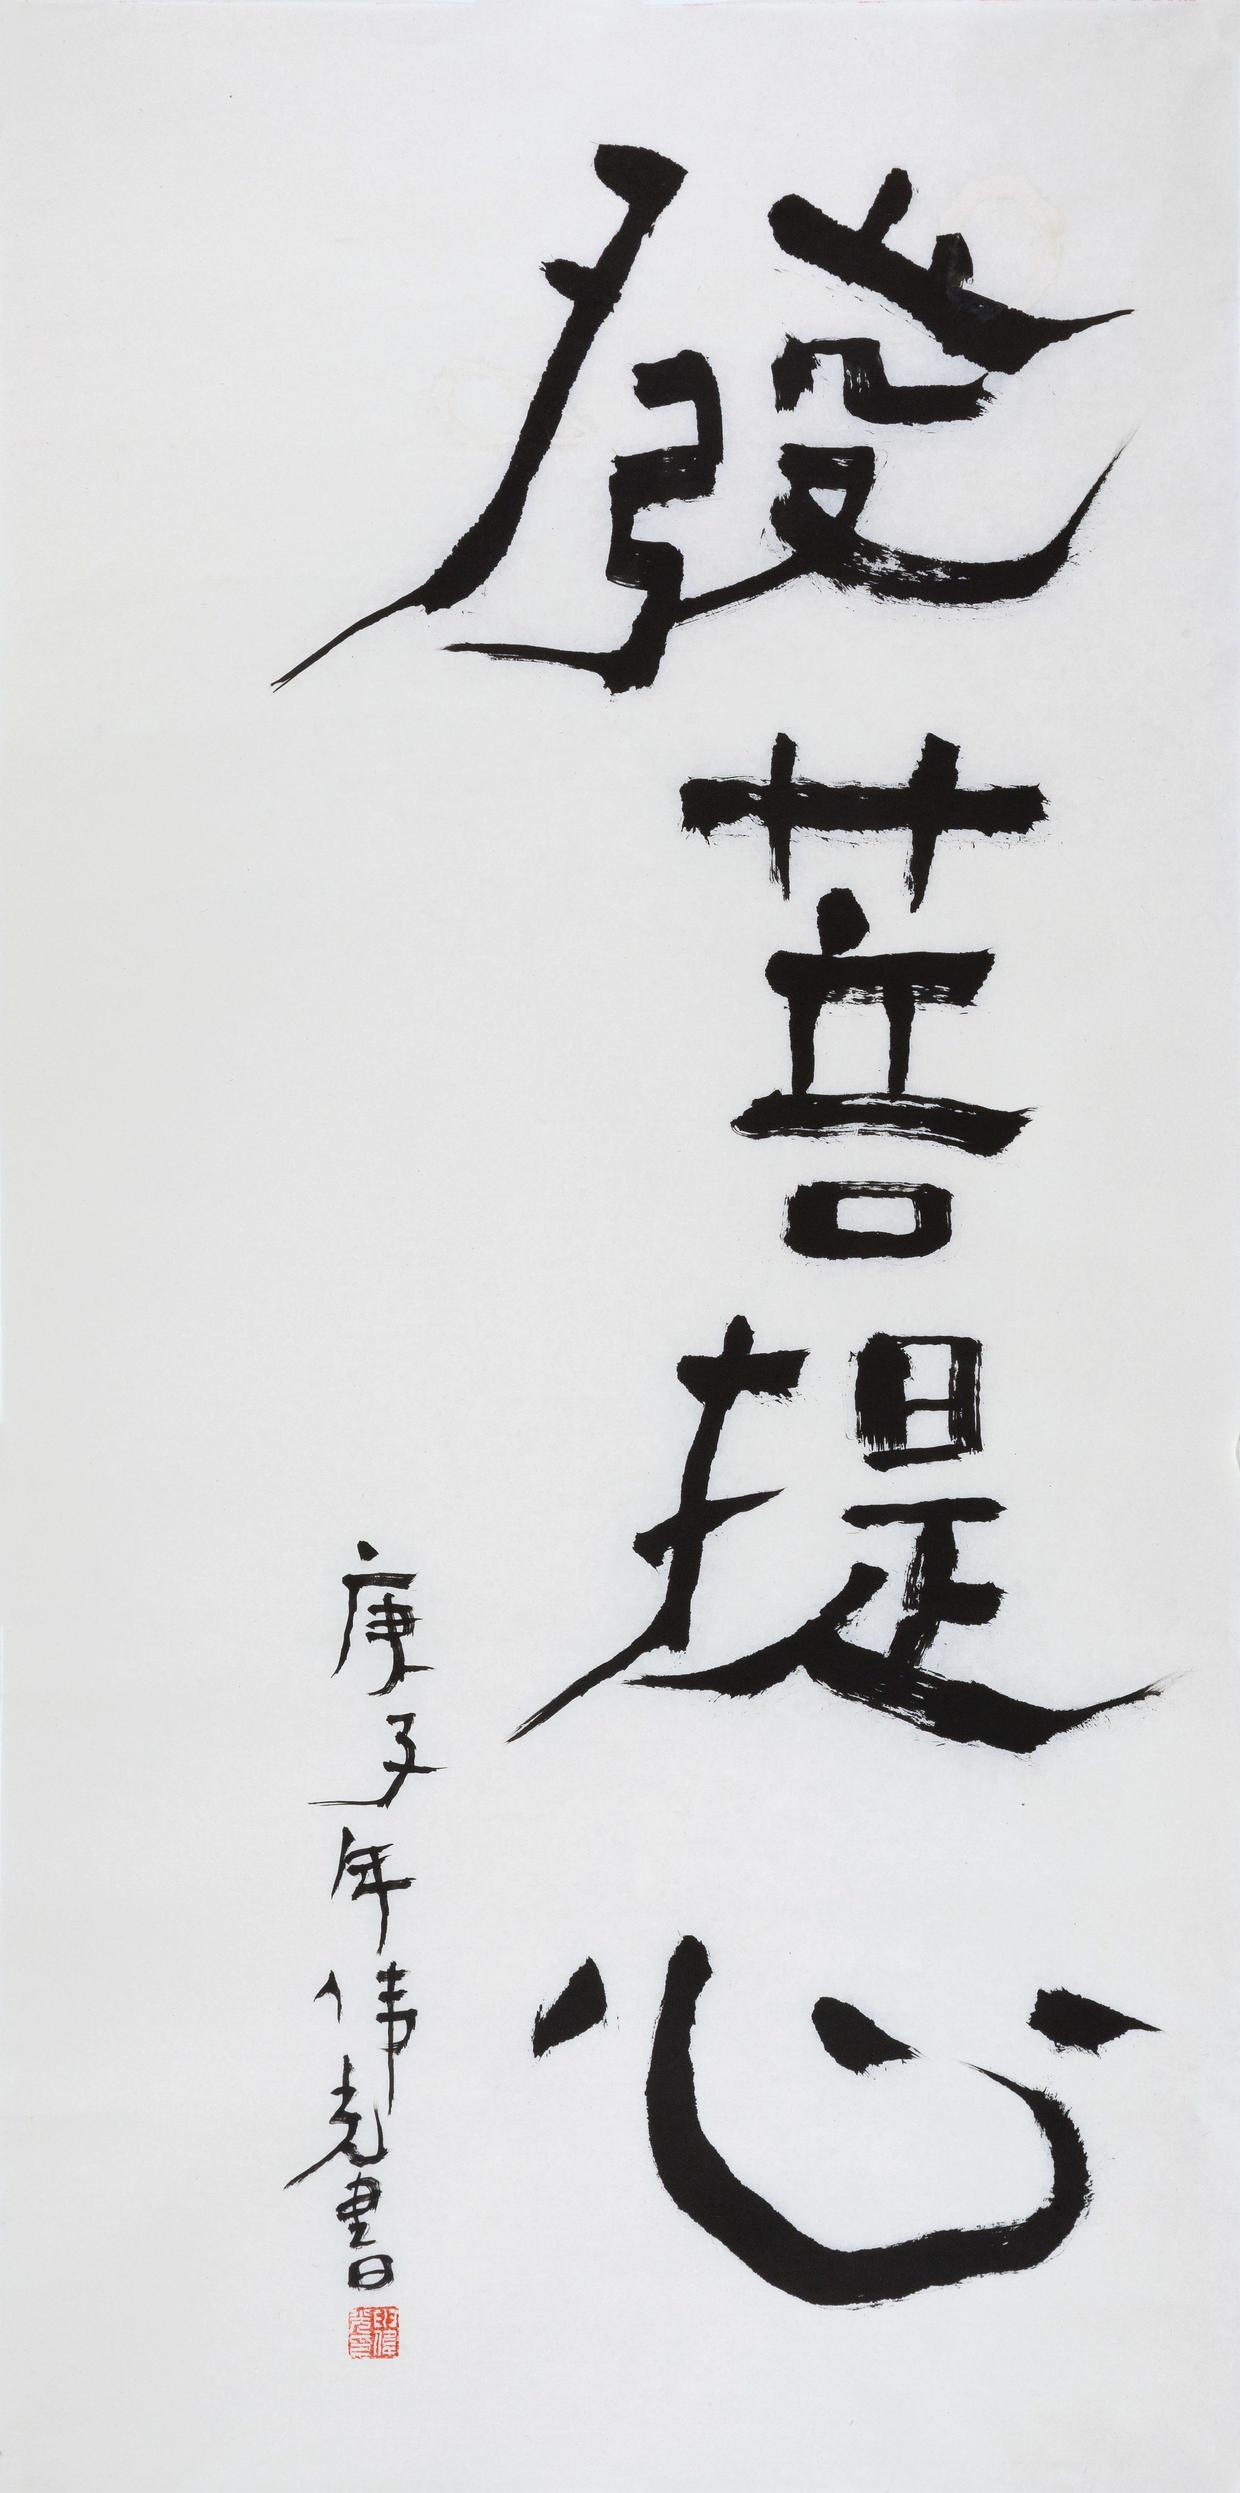 發菩提心
庚子年伟光書